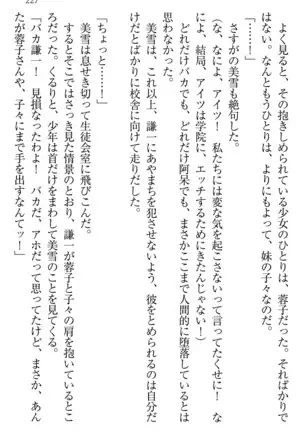 227
よく見ると、その抱きしめられている少女のひとりは、蓉子だった。そればかりで
はない。なんともうひとりは、よりにもよって、妹の子々なのだ。
「………！」
さすがの美雪も絶句した。
（な、なによ、アイツ！　私たちには変な気を起こさないって言ってたくせに！　な
によ、結局、アイツは学院に、エッチするためにきたんじゃない！）
どれだけバカでも、どれだけ阿呆でも、まさかここまで人間的に堕落しているとは
思わなかった。
とにかく、これ以上、謙一にあやまちを犯させないよう、彼をとめられるのは自分だ
けだとばかりに校舎に向けて走りだした。
「ちょっと……！」
美雪は息せき切って生徒会室に飛びこんだ。
するとそこではさっき見た情景のとおり、謙一が蓉子と子々の肩を抱いているとこ
ろだった。くるりと、少年は首だけをまわして美雪のことを見てくる。
「バカ謙一！　見損なったわよ！　バカだ、アホだって思ってたけど、まさか、あん
たが蓉子さんや、子々にまで手を出すなんてッ！」